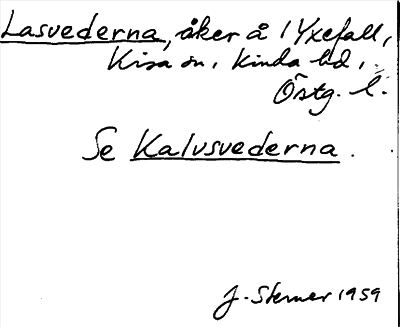 Lasvederna, åker å 1 Yxefall,
Kisa sn, Kinda hd,
Östg. l.
Se Kalvsvederna.
J. Sterner 1959